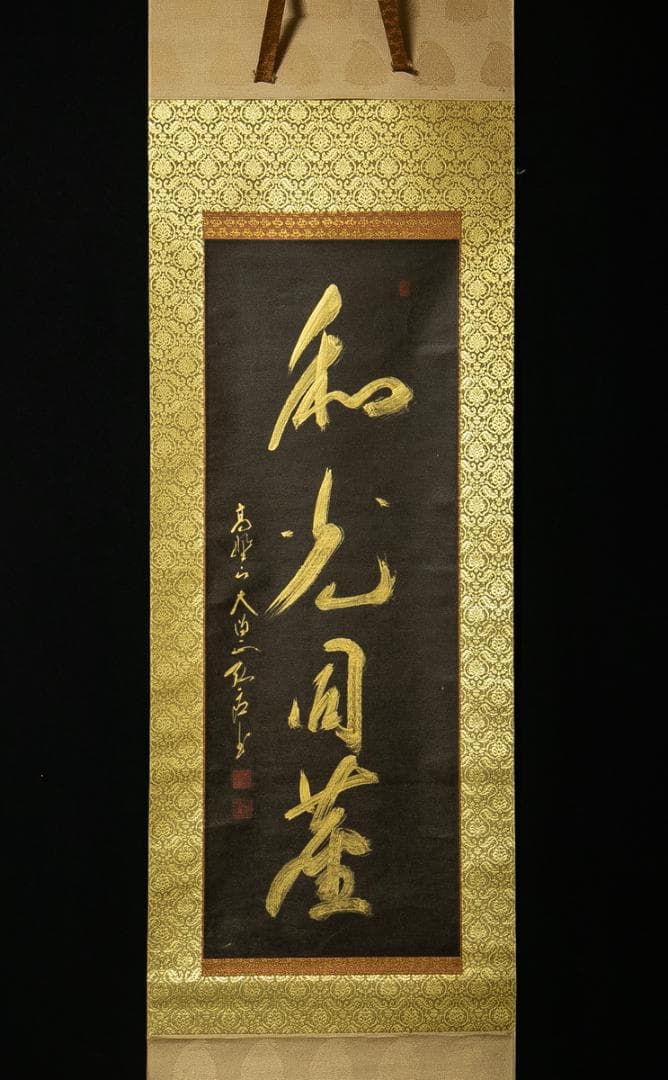 和光同塵
高野山大僧正弘房書